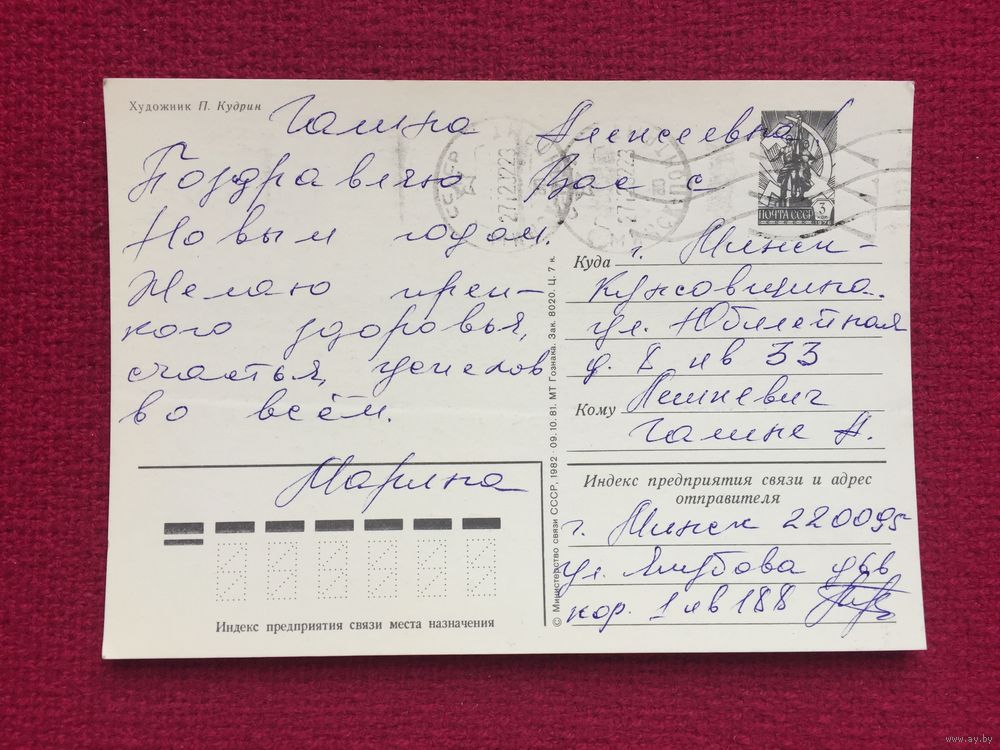 Художник П. Кудрин
Галина Алексеевна!
Поздравляю Вас с
Новым годом.
Желаю креп-
кого здоровья,
счастья, успехов
во всём.
Марина
Индекс предприятия связи места назначения
© Министерство связи СССР, 1982 09.10.81. МТ Гознака. Зак. 8020. Ц. 7 к.
ПОЧТА СССР
3
1976
СССР
27.12.82 23
27.12.82 23
Куда г. Минск-
Кунцовщина.
ул. Юбилейная
д. 8 кв 33
Кому Пешкевич
Галине А.
Индекс предприятия связи и адрес
отправителя
г. Минск 220095
ул. Якубова д 66
кор. 1 кв 188
www.ay.by